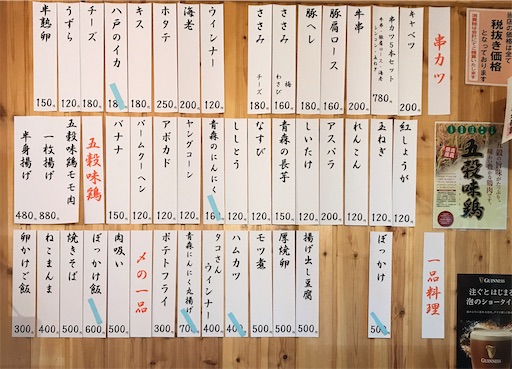 串カツ
キャベツ 200.
串カツ5本セット 780.
牛串・豚肩ロース・海老
レンコン・玉ねぎ
牛串 200.
豚肩ロース 160.
豚ヘレ 160.
ささみ 梅 わさび 180.
ささみ チーズ 160.
ウインナー 120.
海老 200.
ホタテ 250.
キス 180.
八戸のイカ 180.
チーズ 180.
うずら 120.
半熟卵 150.
紅しょうが 120.
玉ねぎ 120.
れんこん 120.
アスパラ 200.
しいたけ 120.
青森の長芋 150.
なすび 120.
ししとう 120.
青森のにんにく 160.
ヤングコーン 120.
アボカド 180.
バームクーヘン 120.
バナナ 150.
五穀味鶏
五穀味鶏モモ肉
一枚揚げ 880.
半身揚げ 480.
一品料理
ぼっかけ 500.
揚げ出し豆腐 500.
厚焼卵 500.
モツ煮 500.
ハムカツ 400.
タコさんウインナー 400.
青森にんにく丸揚げ 700.
ポテトフライ 300.
〆の一品
肉吸い 500.
ぼっかけ飯 600.
焼きそば 500.
ねこまんま 400.
卵かけご飯 300.
当店の価格は全て
税抜き価格
となっております
五穀味鶏
GUINNESS
注ぐとはじまる
泡のショータイム
GUINNESS